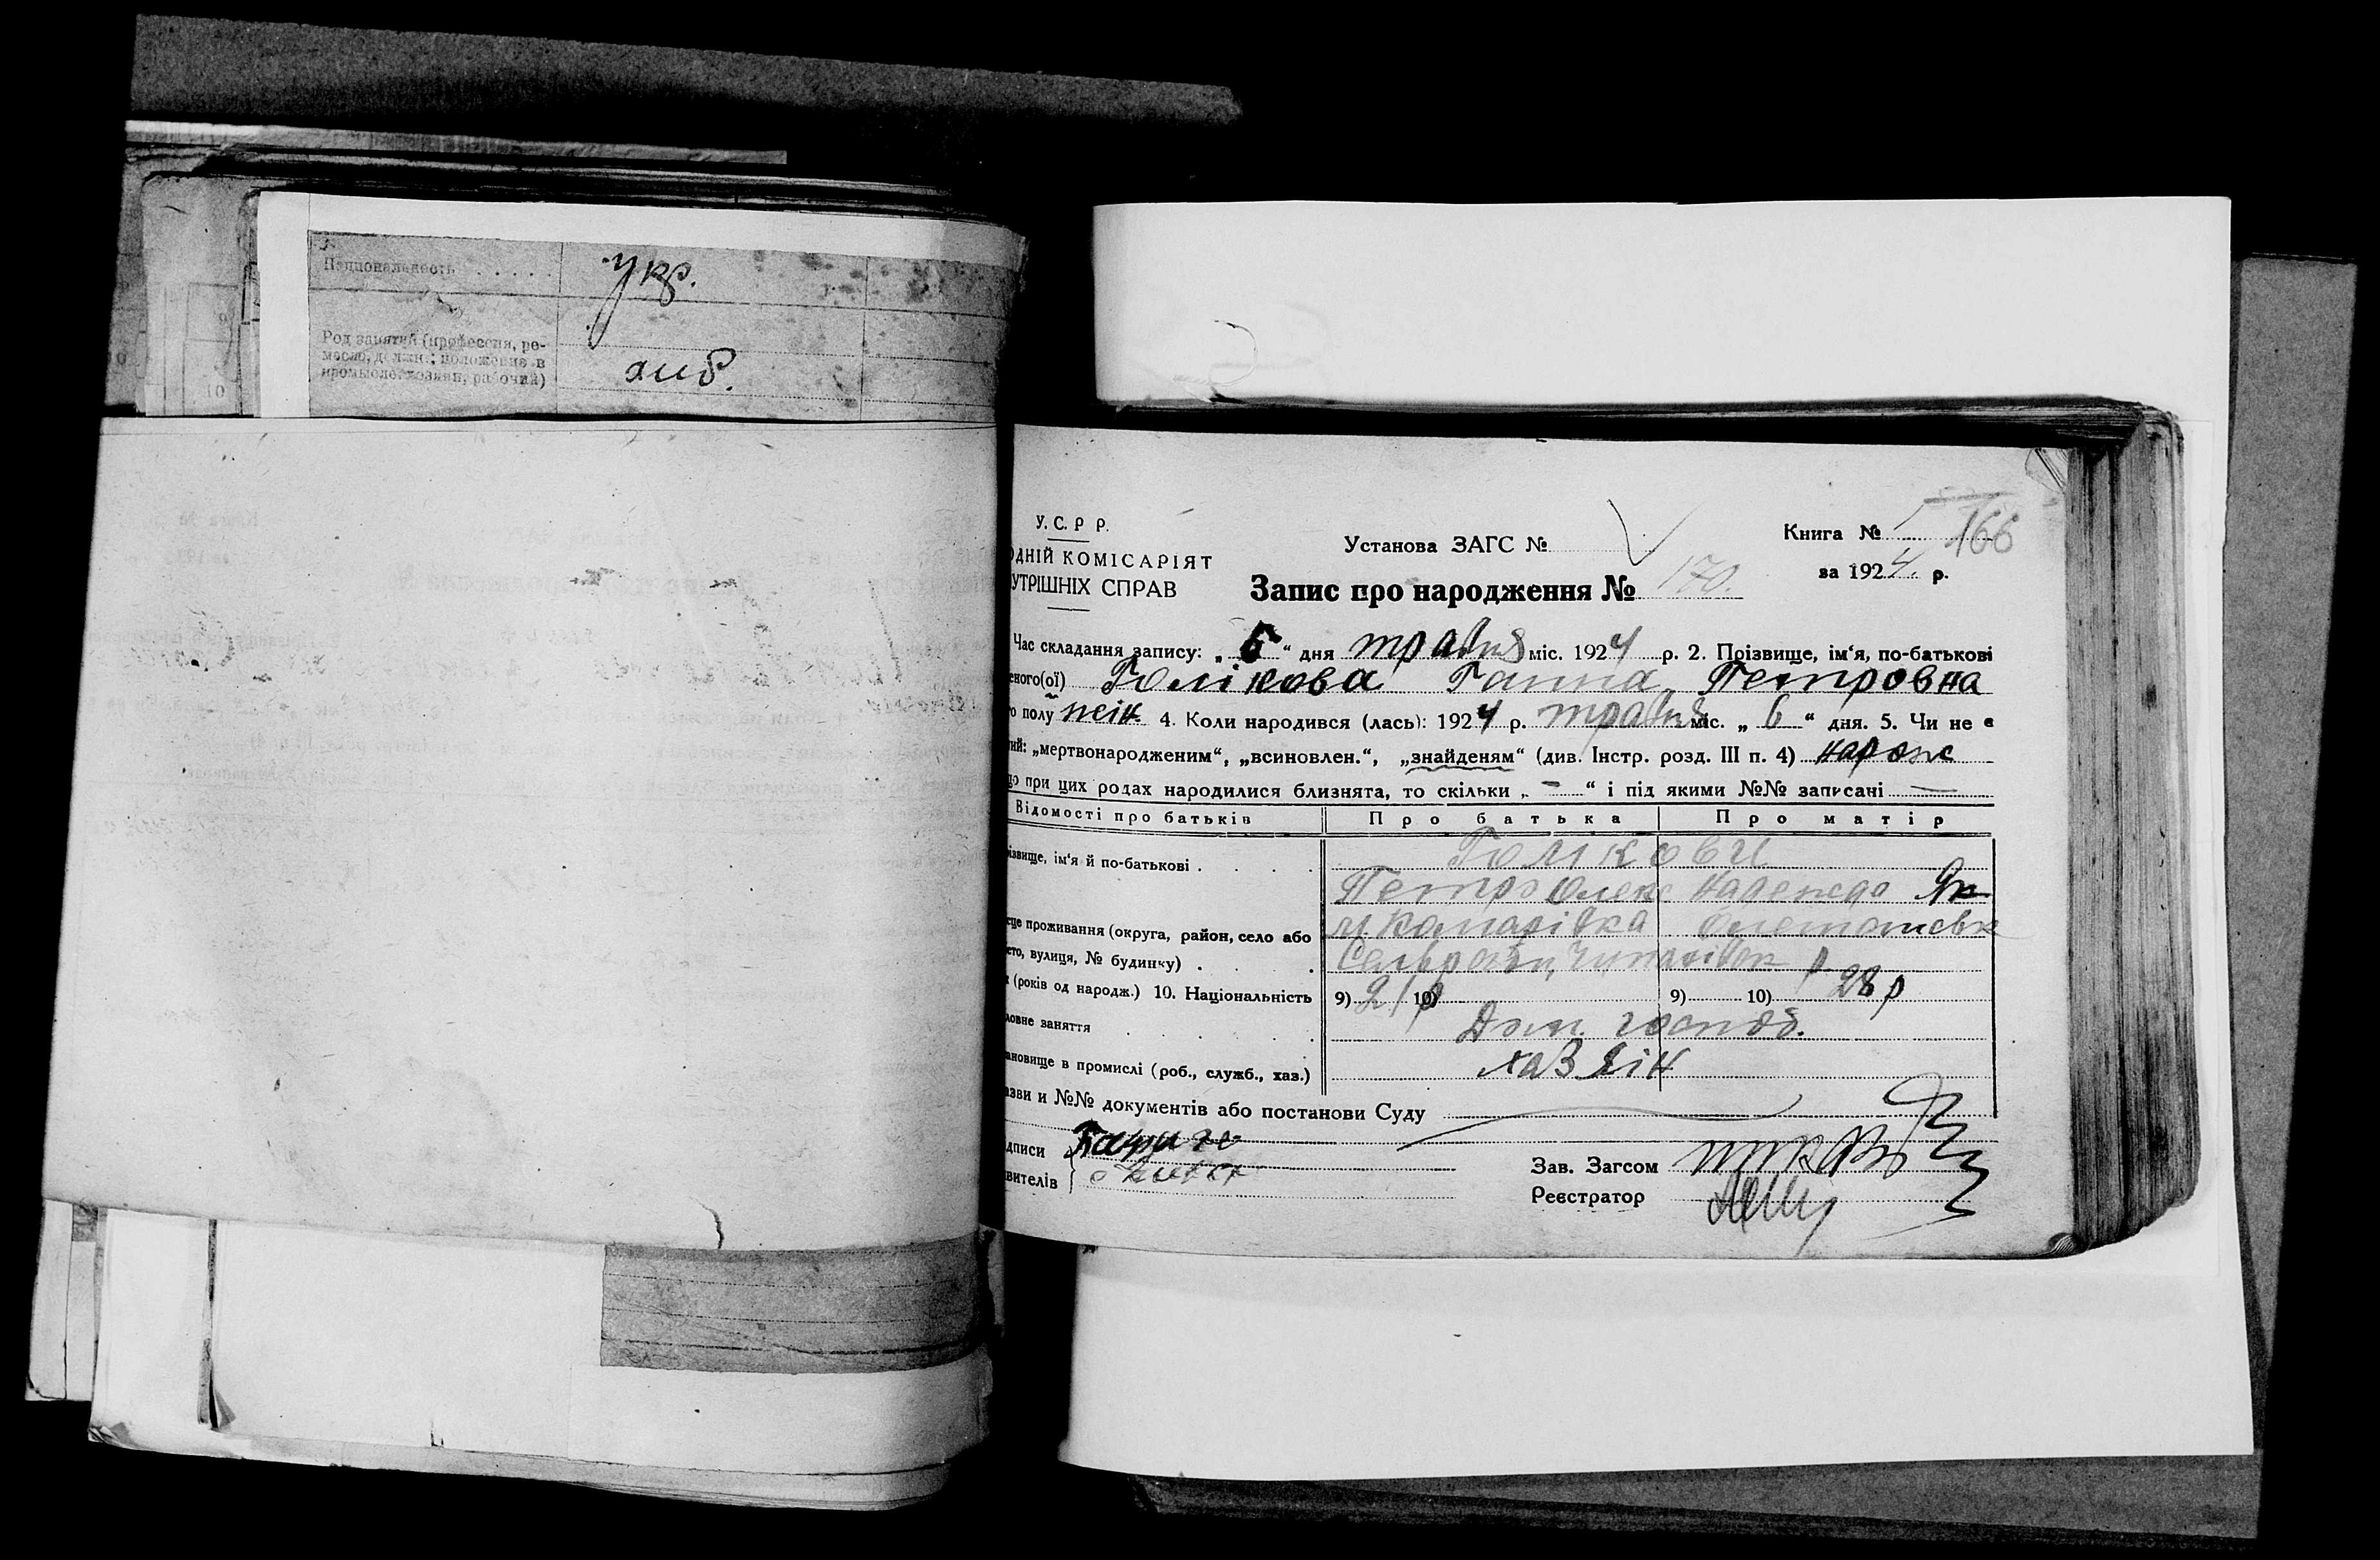 Национальность
укр.
Род занятий (профессия, ре-
месло, должн.; положение в
промысле: хозяин, рабочий)
хліб.
У. С. Р Р.
ОДНІЙ КОМІСАРІЯТ
УТРІШНІХ СПРАВ
Установа ЗАГС №
Книга № 1
166
за 1924 р.
Запис про народження № 170.
Час складання запису: „ 6 “ дня травня міс. 1924 р. 2. Прізвище, ім‘я, по-батькові
еного(ої) Голікова Ганна Петровна
о полу 4. Коли народився (лась): 1924 р. травня міс. „ 6 “ дня. 5. Чи не є
ий: „мертвонародженим“, „всиновлен.“, „знайденям“ (див. Інстр. розд. III п. 4) народж
що при цих родах народилися близнята, то скільки „ – “ і під якими №№ записані —
Відомості про батьків
Про батька
Про матір
ізвище, ім‘я й по-батькові
Голікови
Петро Олекс Надежда Як
сце проживання (округа, район, село або
м Комарівка
сто, вулиця, № будинку)
Сельради,
(років од народж.) 10. Національність 9) 10) 9) 10) 28 р
ловне заняття
Дом. господ.
ановище в промислі (роб., служб., хаз.)
хазяін
азви и №№ документів або постанови Суду
дписи
вителів
Зав. Загсом
Реєстратор